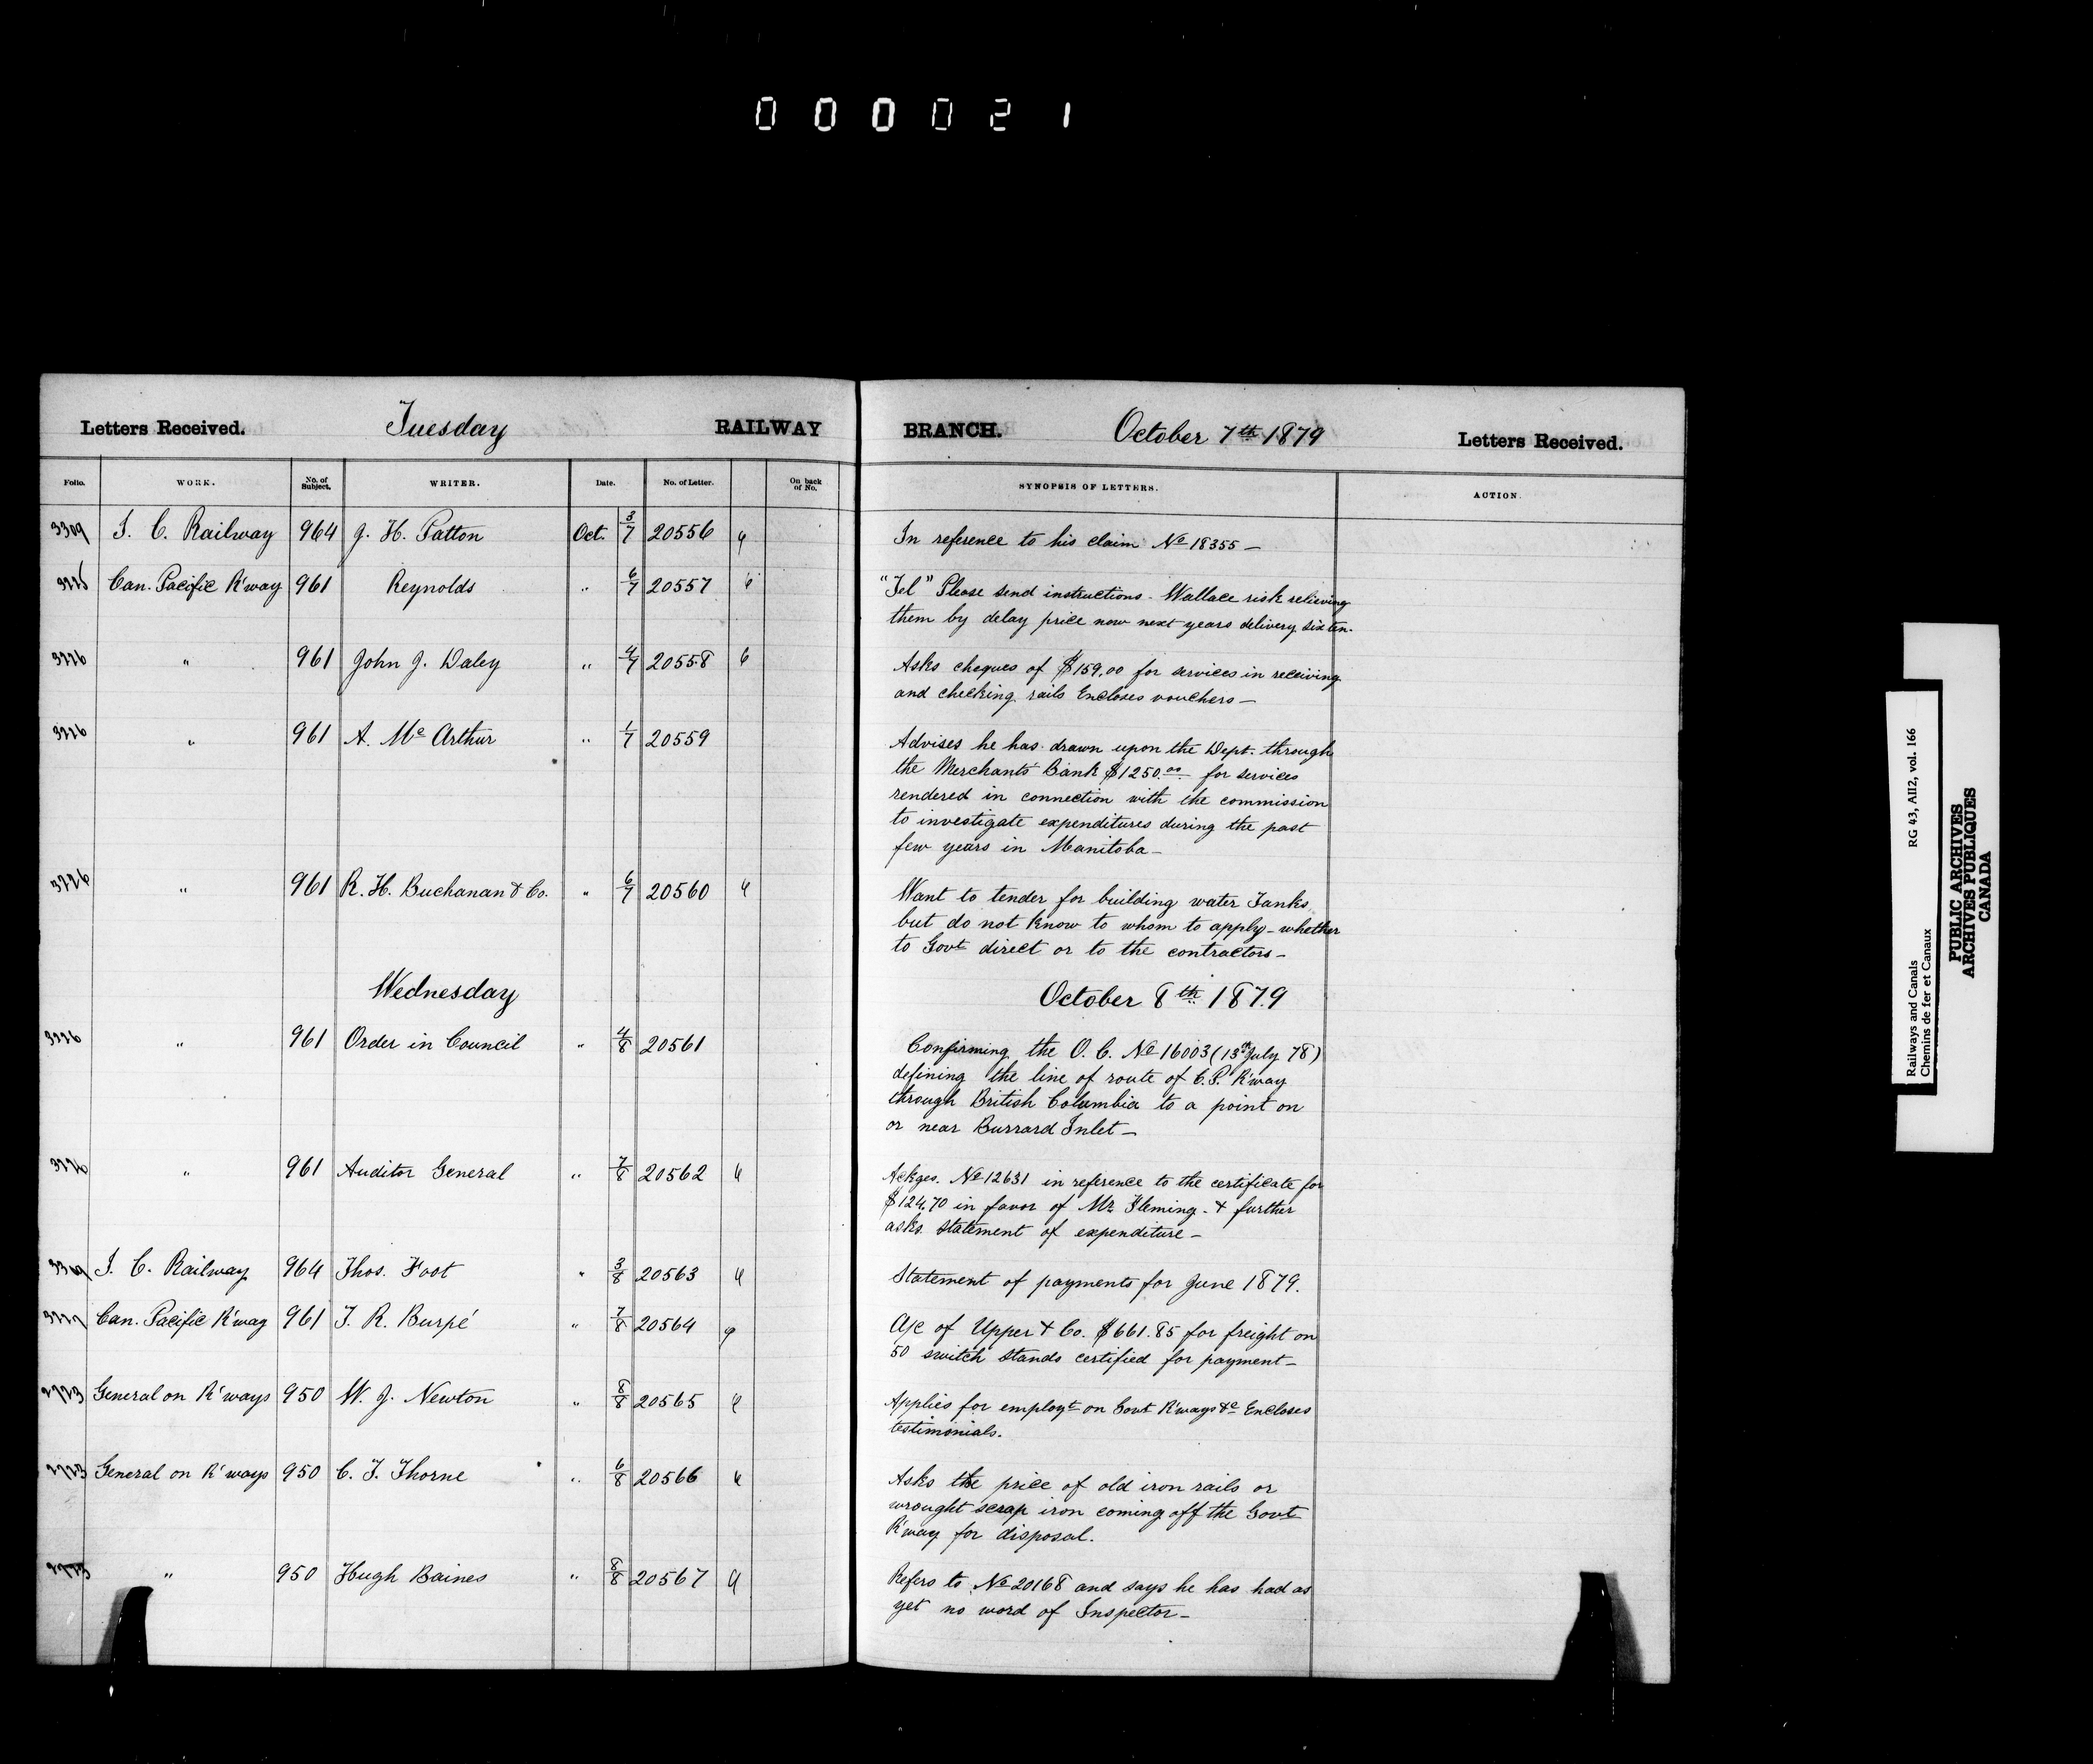 000021
Letters Received. Tuesday RAILWAY BRANCH. October 7th 1879 Letters Received.
Folio. WORK. No. of Subject. WRITER. Date. No. of Letter. On back of No. SYNOPSIS OF LETTERS. ACTION.
3309 I. C. Railway 964 J. H. Patton Oct. 3/7 20556 In reference to his claim No 18355 —
Can. Pacific R'way 961 Reynolds " 6/7 20557 "Tel" Please send instructions - Wallace risk relieving
them by delay price now next years delivery six ten.
3226 " 961 John J. Daley " 4/7 20558 Asks cheques of $159.00 for services in receiving
and checking rails Encloses vouchers —
3226 " 961 A. Mc Arthur " 1/7 20559 Advises he has drawn upon the Dept. through
the Merchants Bank $1250.00 for services
rendered in connection with the commission
to investigate expenditures during the past
few years in Manitoba —
3226 " 961 R. H. Buchanan & Co. " 6/7 20560 Want to tender for building water Tanks
but do not know to whom to apply - whether
to Govt direct or to the contractors —
Wednesday October 8th 1879
3226 " 961 Order in Council " 4/8 20561 Confirming the O. C. No 16003 (13th July 78)
defining the line of route of C.P. R'way
through British Columbia to a point on
or near Burrard Inlet —
3226 " 961 Auditor General " 7/8 20562 Ackges. No 12631 in reference to the certificate for
$124.70 in favor of Mr Fleming - & further
asks statement of expenditure —
3309 I. C. Railway 964 Thos. Foot " 3/8 20563 Statement of payments for June 1879.
3227 Can. Pacific R'way 961 T. R. Burpé " 7/8 20564 A/c of Upper & Co. $661.85 for freight on
50 switch stands certified for payment —
2723 General on R'ways 950 W. J. Newton " 8/8 20565 Applies for employt on Govt R'ways &c Encloses
testimonials.
2723 General on R'ways 950 C. T. Thorne " 6/8 20566 Asks the price of old iron rails or
wrought scrap iron coming off the Govt
R'way for disposal.
2723 " 950 Hugh Baines " 8/8 20567 Refers to No 20168 and says he has had as
yet no word of Inspector —
Railways and Canals RG 43, AII2, vol. 166
Chemins de fer et Canaux
PUBLIC ARCHIVES
ARCHIVES PUBLIQUES
CANADA